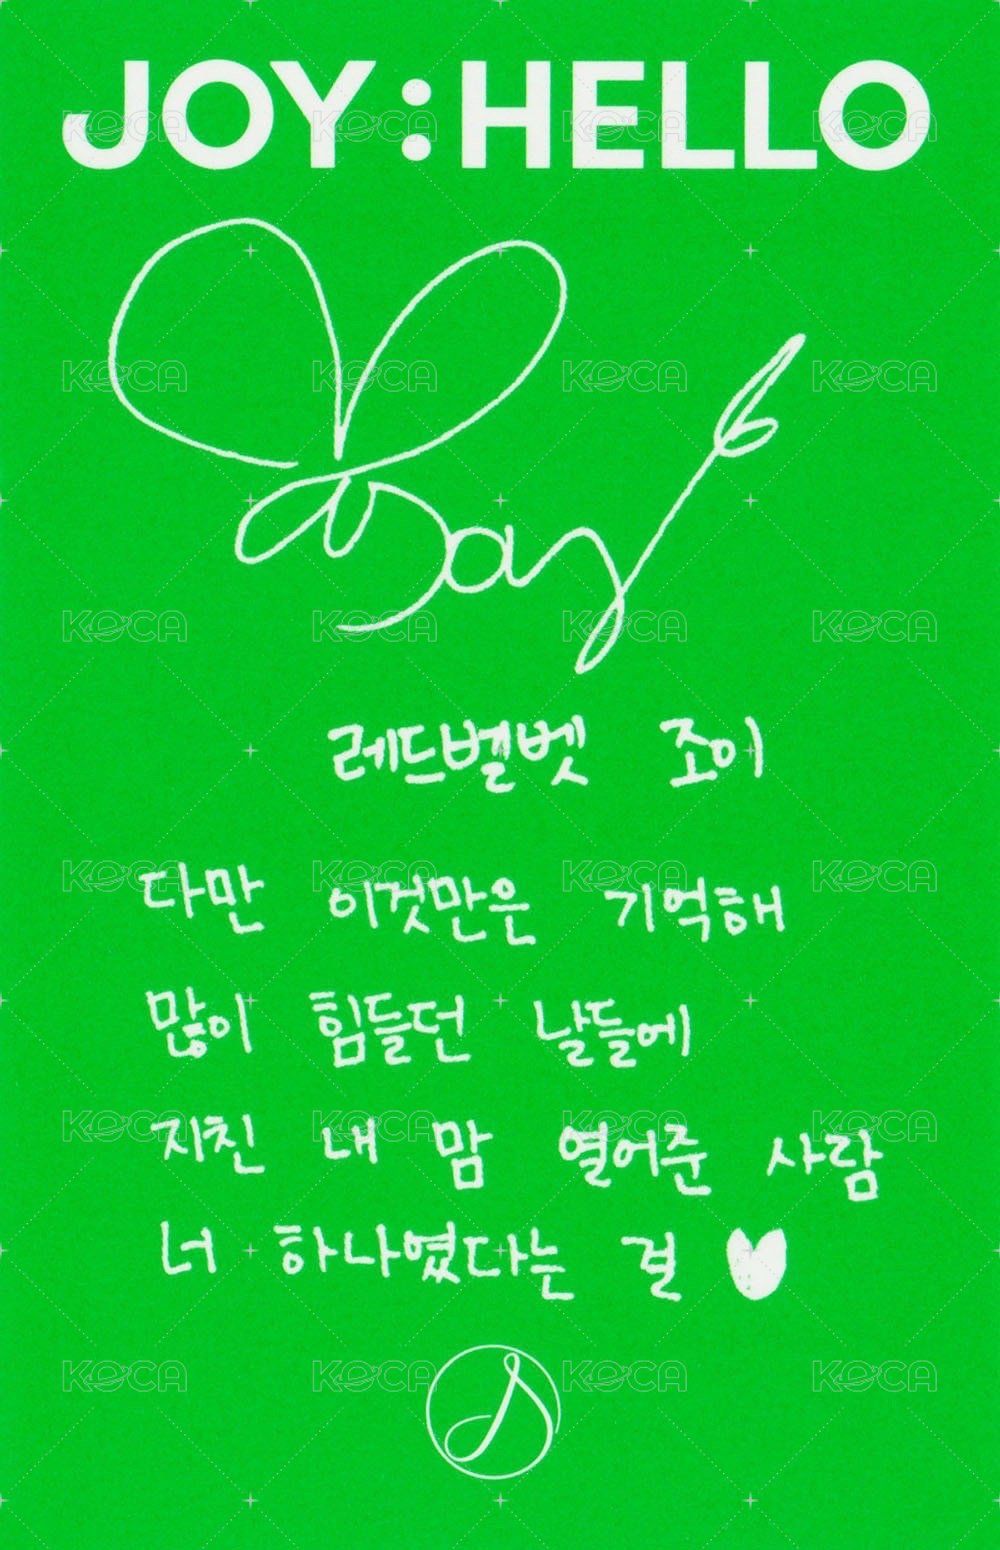 JOY:HELLO
레드벨벳 조이
다만 이것만은 기억해
많이 힘들던 날들에
지친 내 맘 열어준 사람
너 하나였다는 걸
KOCA